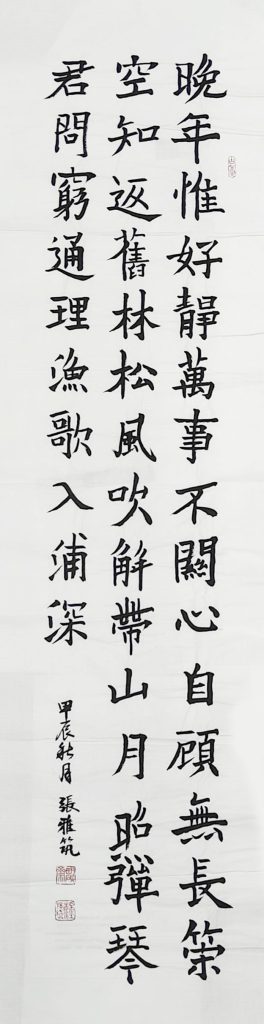 晚年惟好靜萬事不關心自顧無長策
空知返舊林松風吹解帶山月照彈琴
君問窮通理漁歌入浦深
甲辰秋月張雅筑